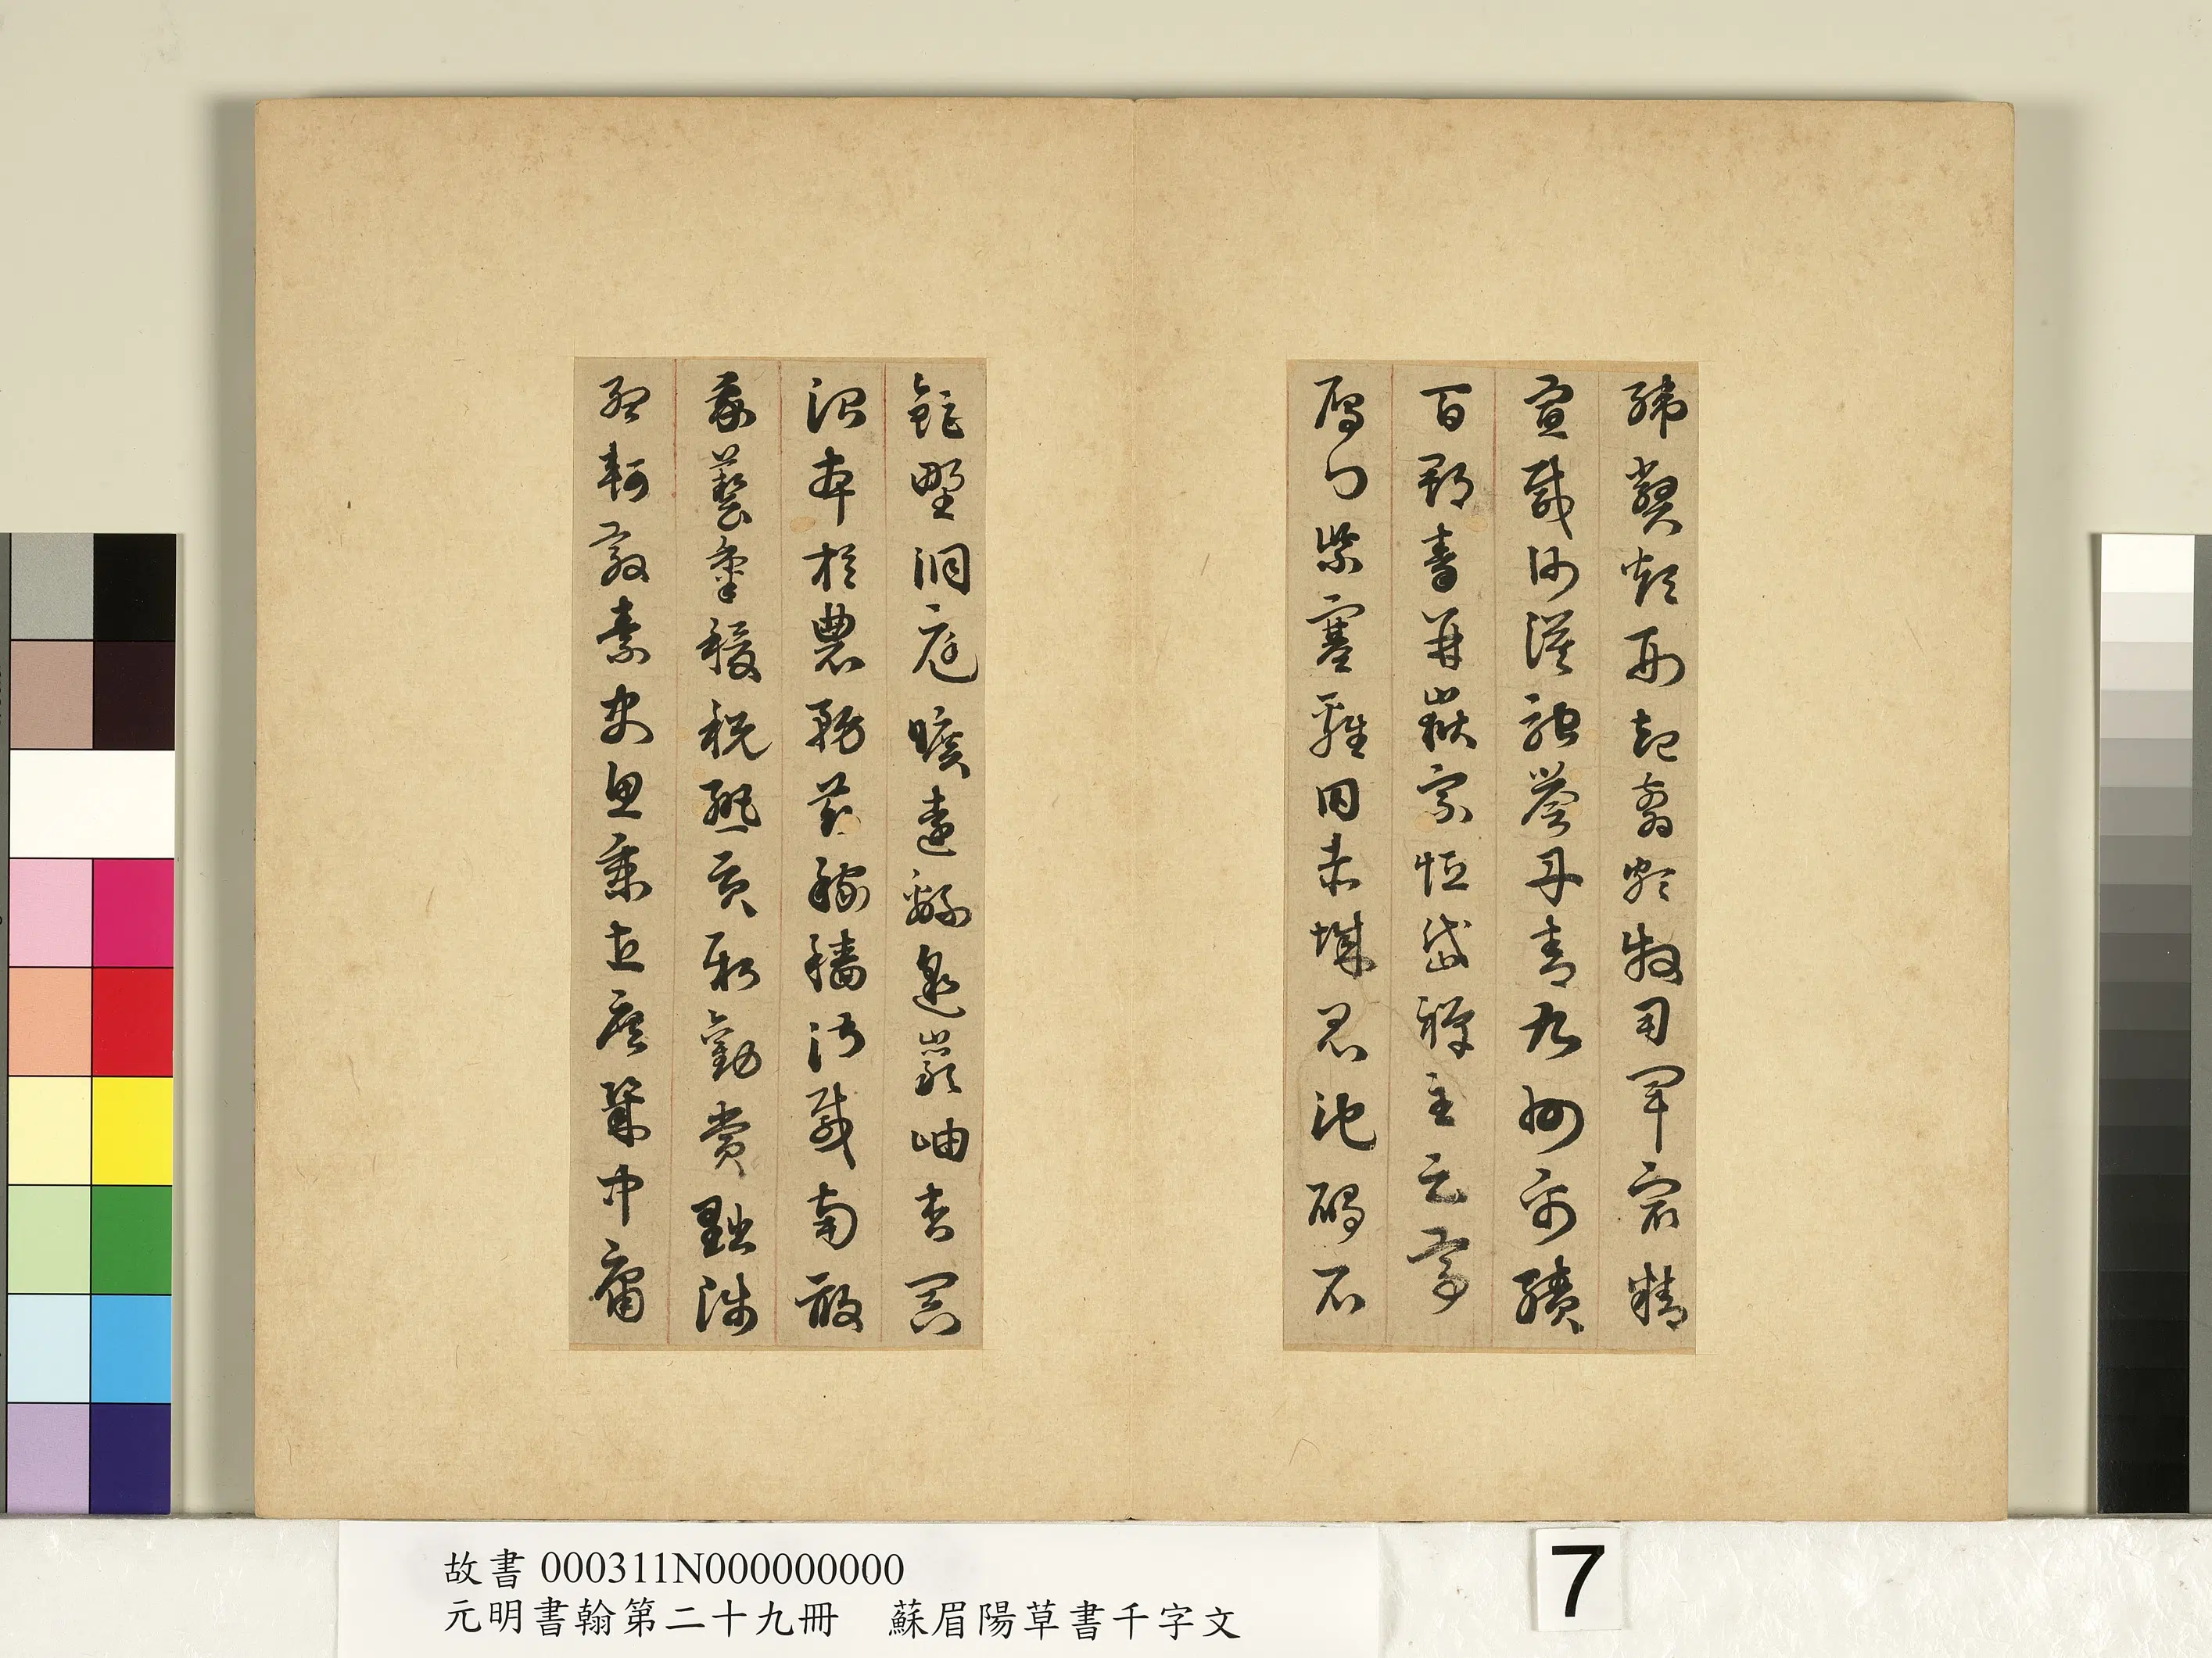 韓弊煩刑起翦頗牧用軍最精
宣威沙漠馳譽丹青九州禹蹟
百郡秦并嶽宗恒岱禪主云亭
雁門紫塞雞田赤城昆池碣石
鉅野洞庭曠遠緜邈巖岫杳冥
治本於農務茲稼穡俶載南畝
我藝黍稷稅熟貢新勸賞黜陟
孟軻敦素史魚秉直庶幾中庸
故書 000311N000000000
元明書翰第二十九冊 蘇眉陽草書千字文
7